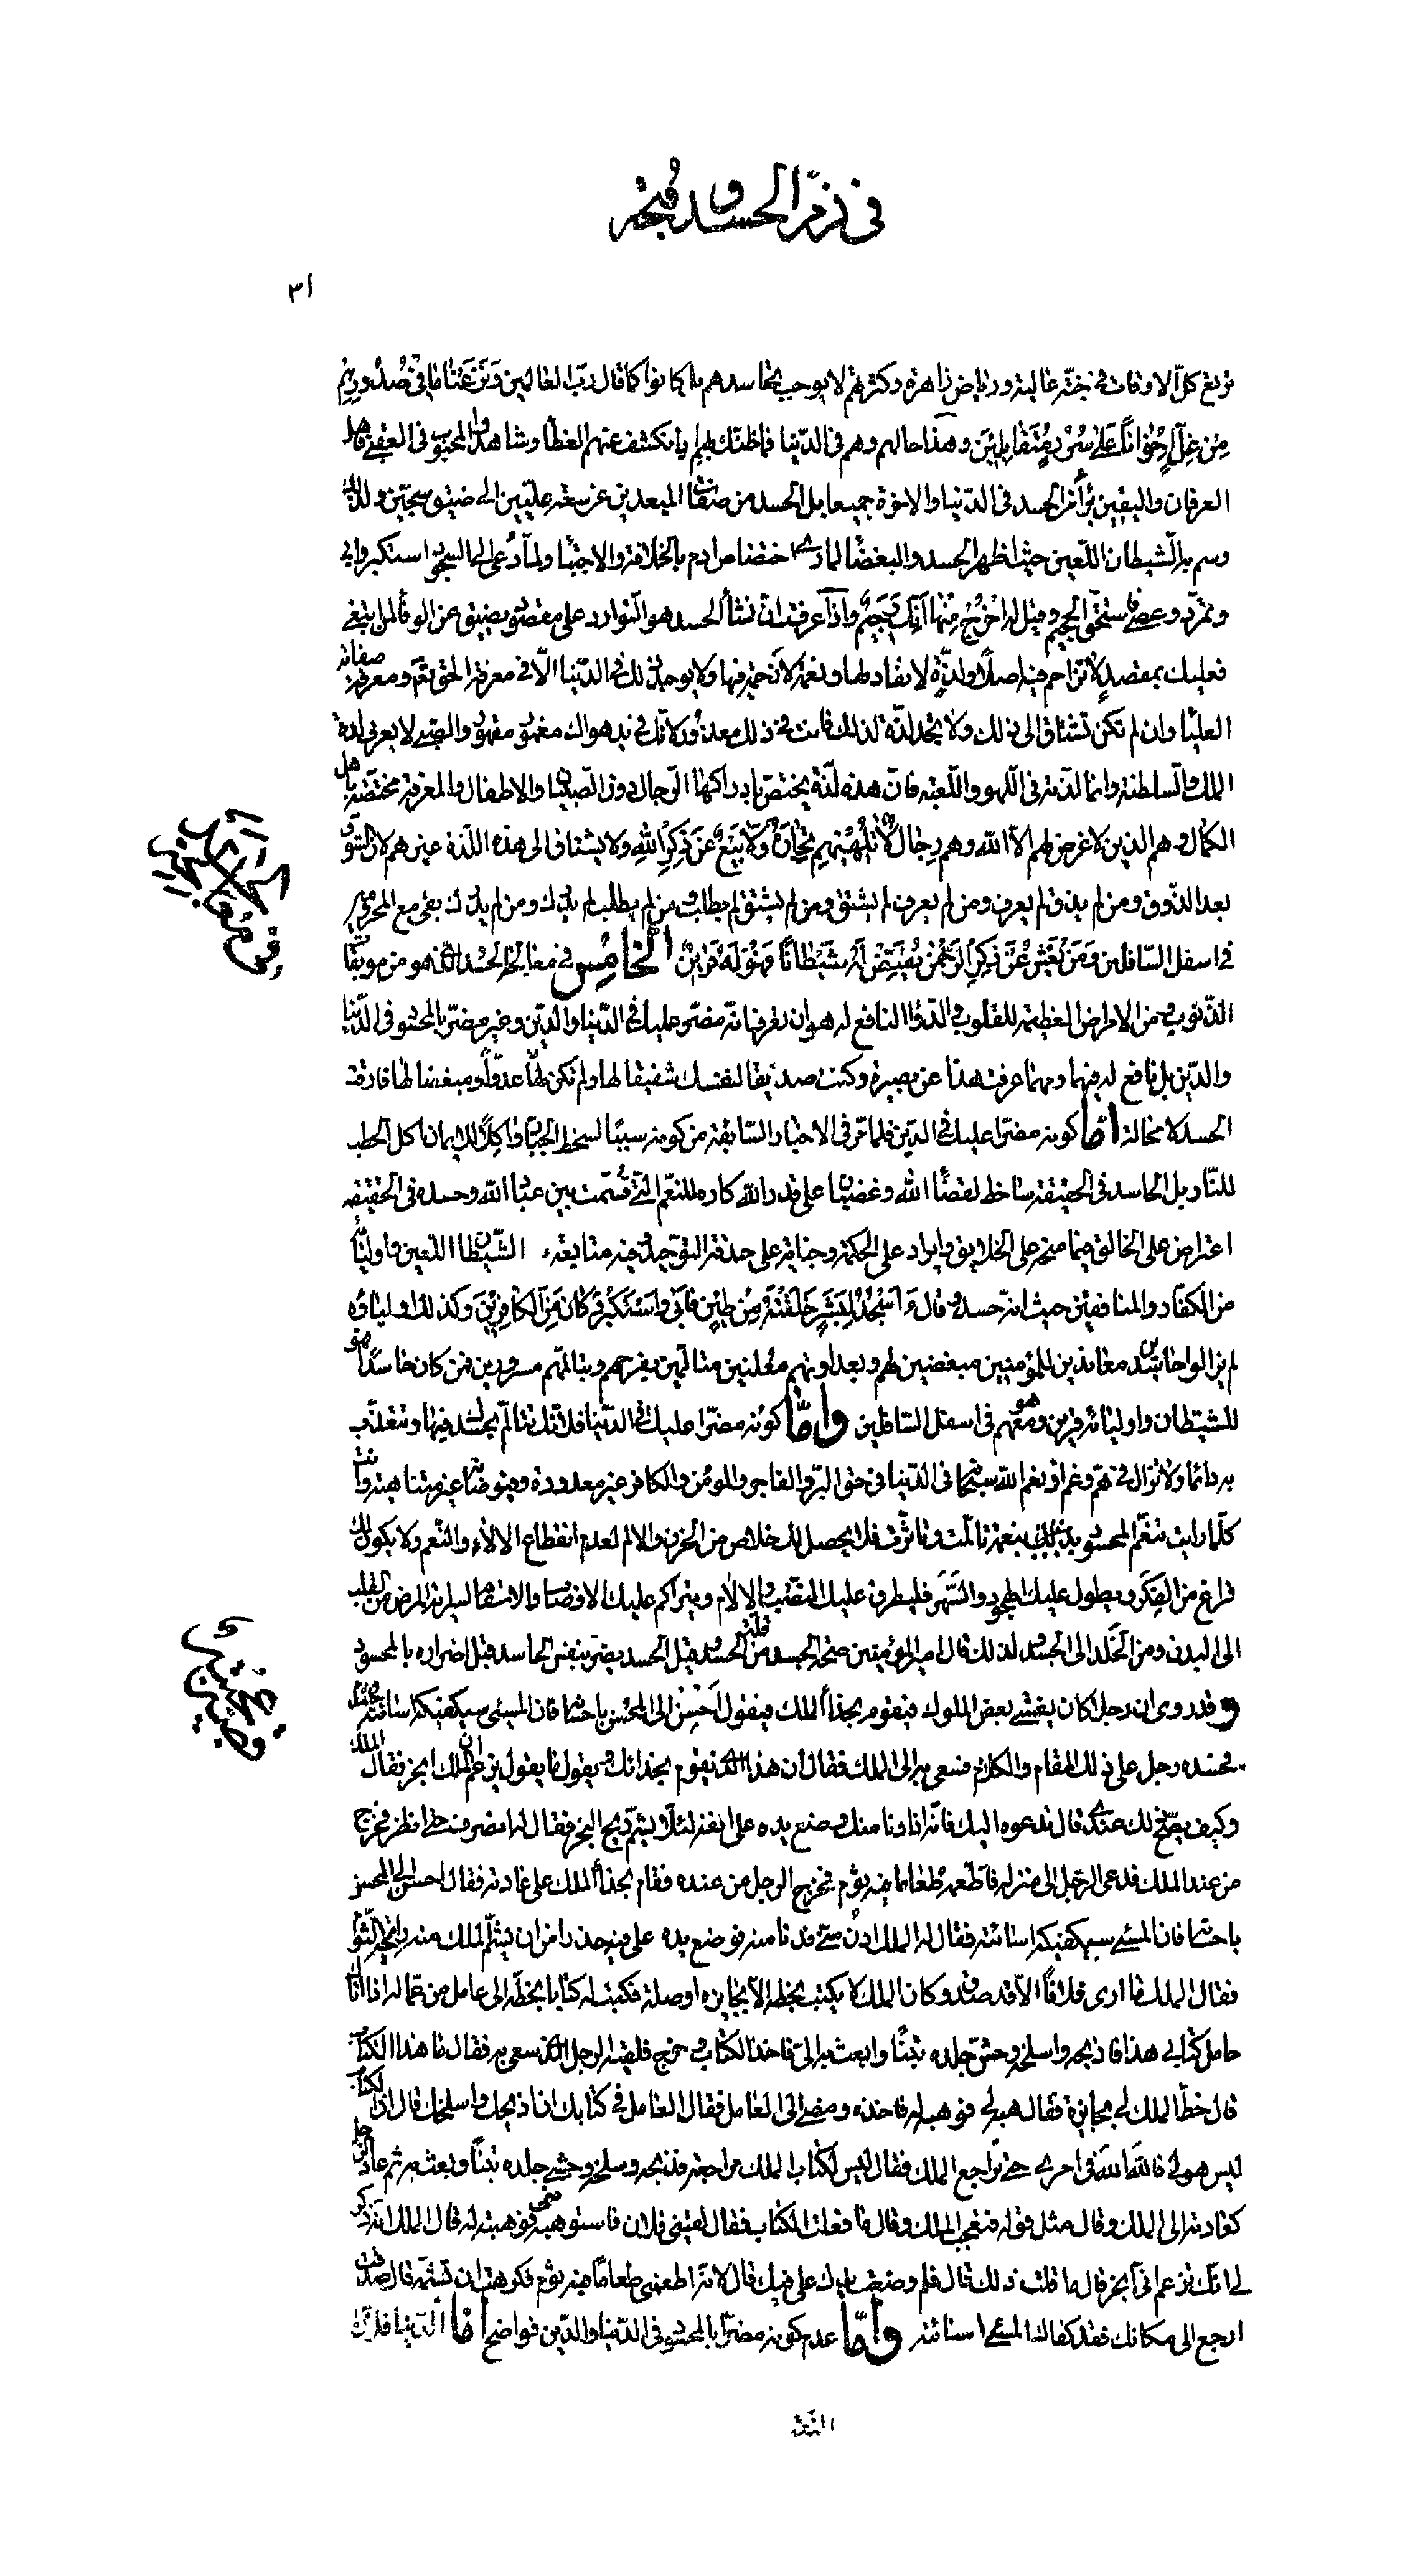 في ذمّ الحسد وقبحه
٣١
ترتع كلّ الاوقات في جنّة عالية ورياض زاهرة وكثرتهم لا يوجب تحاسدهم بل كانوا كما قال ربّ العالمين وَنَزَعْنا ما في صُدُورِهِمْ
مِنْ غِلٍّ اِخْواناً عَلى سُرُرٍ مُتَقابِلينَ وهذا حالهم وهم في الدّنيا فما ظنّك بهم اذا انكشف عنهم الغطاء وشاهدوا المحبوب في العقبى فاهل
العرفان واليقين برآء من الحسد في الدّنيا والاخرة جميعا بل الحسد من صفات المبعدين عن سعة عليّين الى ضيق سجّين ولذلك
وسم به الشّيطان اللّعين حيث اظهر الحسد والبغضاء لما رأى اختصاص ادم بالخلافة والاجتباء ولمّا دُعى الى السجود استكبر وابى
وتمرّد وعصى فاستحقّ الجحيم وقيل له اخْرُجْ مِنْها فَاِنَّكَ رَجيمٌ واذا عرفت انّ منشأ الحسد هو التّوارد على مقصود يضيق عن الوفاء لمن ابتغى
فعليك بمقصدٍ لا تزاحم فيه اصلاً ولذّة لا نفاد لها ونعمة لا زحمة فيها ولا يوجد ذلك في الدّنيا الّا في معرفة الحق تعالى ومعرفة صفاته
العليا وان لم تكن تشتاق الى ذلك ولا تجد لذّة لذلك فانت في ذلك معذور لانّك في يد هواك مغمور مقهور والصّبي لا يعرف لذة
الملك والسلطنة وانما لذّته في اللّهو واللّعبة فانّ هذه لذّة يختصّ بادراكها الرّجال دون الصّبيان والاطفال والمعرفة مختصّة باهل
الكمال وهم الذين لا غرض لهم الّا الله وهم رِجالٌ لا تُلْهيهِمْ تِجارَةٌ وَلا بَيْعٌ عَنْ ذِكْرِ اللهِ ولا يشتاق الى هذه اللّذة غيرهم لان الشّوق
بعد الذّوق ومن لم يذق لم يعرف ومن لم يعرف لم يشتق ومن لم يشتق لم يطلب ومن لم يطلب لم يدرك ومن لم يدرك بقى مع المحرومين
في اسفل السّافلين وَمَنْ يَعْشُ عَنْ ذِكْرِ الرَّحْمنِ نُقَيِّضْ لَهُ شَيْطاناً فَهُوَ لَهُ قَرينٌ الخامس في معالجة الحسد الذى هو من موبقات
الذّنوب ومن الامراض العظيمة للقلوب والدّواء النافع له هو ان تعرف انّه مضرّ عليك في الدّنيا والدّين وغير مضرّ بالمحسود في الدّنيا
والدّين بل نافع له فيهما ومهما عرفت هذا عن بصيرة وكنت صديقا لنفسك شفيقا لها ولم تكن لها عدوّاً ومبغضا لها فارقت
الحسد لا محالة امّا كونه مضرّا عليك في الدّين فلما مرّ في الاخبار السّابقة من كونه سببًا لسخط الجبّار واكِلاً للايمان اكل الحطب
للنّار بل الحاسد في الحقيقة ساخط لقضاء الله وغضبان على قدر الله كاره للنعم الّتي قسّمت بين عباد الله وحسده في الحقيقة
اعتراض على الخالق فيما منحه على الخلايق وايراد على الحكمة وجناية على حدقة التوحيد وفيه متابعة الشّيطان اللّعين واوليائه
من الكفّار والمنافقين حيث انّه حسد وقال ءَاَسْجُدُ لِبَشَرٍ خَلَقْتَهُ مِنْ طينٍ فَاَبى وَاسْتَكْبَرَ وَكانَ مِنَ الْكافِرينَ وكذلك اولياؤه
لم يزالوا حاسدين معاندين للمؤمنين مبغضين لهم وبعداوتهم معلنين متالّمين بفرحهم وبتالّمهم مسرورين فمن كان حاسدًا فهو
للشيطان واوليائه قرين وهو معهم في اسفل السّافلين وامّا كونه مضرّا عليك في الدّنيا فلانّك تتالّم بحسدك فيها وتتعذّب
به دائما ولا تزال في همّ وغم اذ نعم الله سبحانه في الدّنيا في حق البرّ والفاجر والمؤمن والكافر غير معدودة وفيوضاته غير متناهية وانت
كلّما رايت تنعّم المحسود بنعمة تالّمت وتاثّرت فلا يحصل لك خلاص من الحزن والالم لعدم انقطاع الالاء والنّعم ولا يكون لك
فراغ من الفكر ويطول عليك الهجود والسّهر فليطرق عليك التعب والالام ويتراكم عليك الاوصاب والاسقام لسراية المرض من القلب
الى البدن ومن الخَلَد الى الجسد ولذلك قال امير المؤمنين صحّة الجسد من قلّة الحسد وقيل الحسد يضرّ بنفس الحاسد قبل اضراره بالمحسود
وقد روى ان رجلا كان يغشى بعض الملوك فيقوم بحذاء الملك فيقول اَحْسِنْ الى المحسن باحسانه فان المسئ سيكفيكه اسائته
فحسده رجل على ذلك المقام والكلام فسعى به الى الملك فقال ان هذا الذى يقوم بحذائك ويقول ما يقول يزعم ان الملك ابخر فقال الملك
وكيف يصحّ ذلك عندى قال تدعوه اليك فانّه اذا دنا منك وضع يده على انفه لئلّا يشمّ ريح البخر فقال له انصرف حتى انظر فخرج
من عند الملك فدعى الرّجل الى منزله فاطعمه طعاما فيه ثوم فخرج الرجل من عنده فقام بحذاء الملك على عادته فقال احسن الى المحسن
باحسانه فان المسئ سيكفيكه اسائته فقال له الملك ادن منّى فدنا منه فوضع يده على فيه حذرا من ان يشمّ الملك منه رايحة الثّوم
فقال الملك ما ارى فلانًا الّا قد صدق وكان الملك لا يكتب بخطه الّا بجايزة او صلة فكتب له كتابا بخطّه الى عامل من عماله اذا اتاك
حامل كتابي هذا فاذبحه واسلخه وحشّ جلده تبنًا وابعث به الىّ فاخذ الكتاب وخرج فلقيه الرجل الذى سعى به فقال ما هذا الكتاب
قال خطّ الملك لى بجايزة فقال هبه لى فوهبه له فاخذه ومضى الى العامل فقال العامل في كتابك ان اذبحك واسلخك قال ان الكتاب
ليس هو لى فاللهَ اللهَ في امرى حتى تراجع الملك فقال ليس لكتاب الملك مراجعة فذبحه وسلخه وحشى جلده تبنًا وبعث به ثم عاد الرجل
كعادته الى الملك وقال مثل قوله فتعجّب الملك وقال ما فعلت الكتاب فقال لقيني فلان فاستوهبه منّى فوهبته له قال الملك انّه ذكر
لى انّك تزعم انّى ابخر قال ما قلت ذلك قال فلم وضعت يدك على فيك قال لانّه اطعمنى طعامًا فيه ثوم فكرهت ان تشمّه قال صدقت
ارجع الى مكانك فقد كفاك المسئ اسائته وامّا عدم كونه مضرّا بالمحسود في الدّنيا والدّين فواضح امّا الدّنيا فلانّ
في معالجة الحسد
قصّة
النّعمة